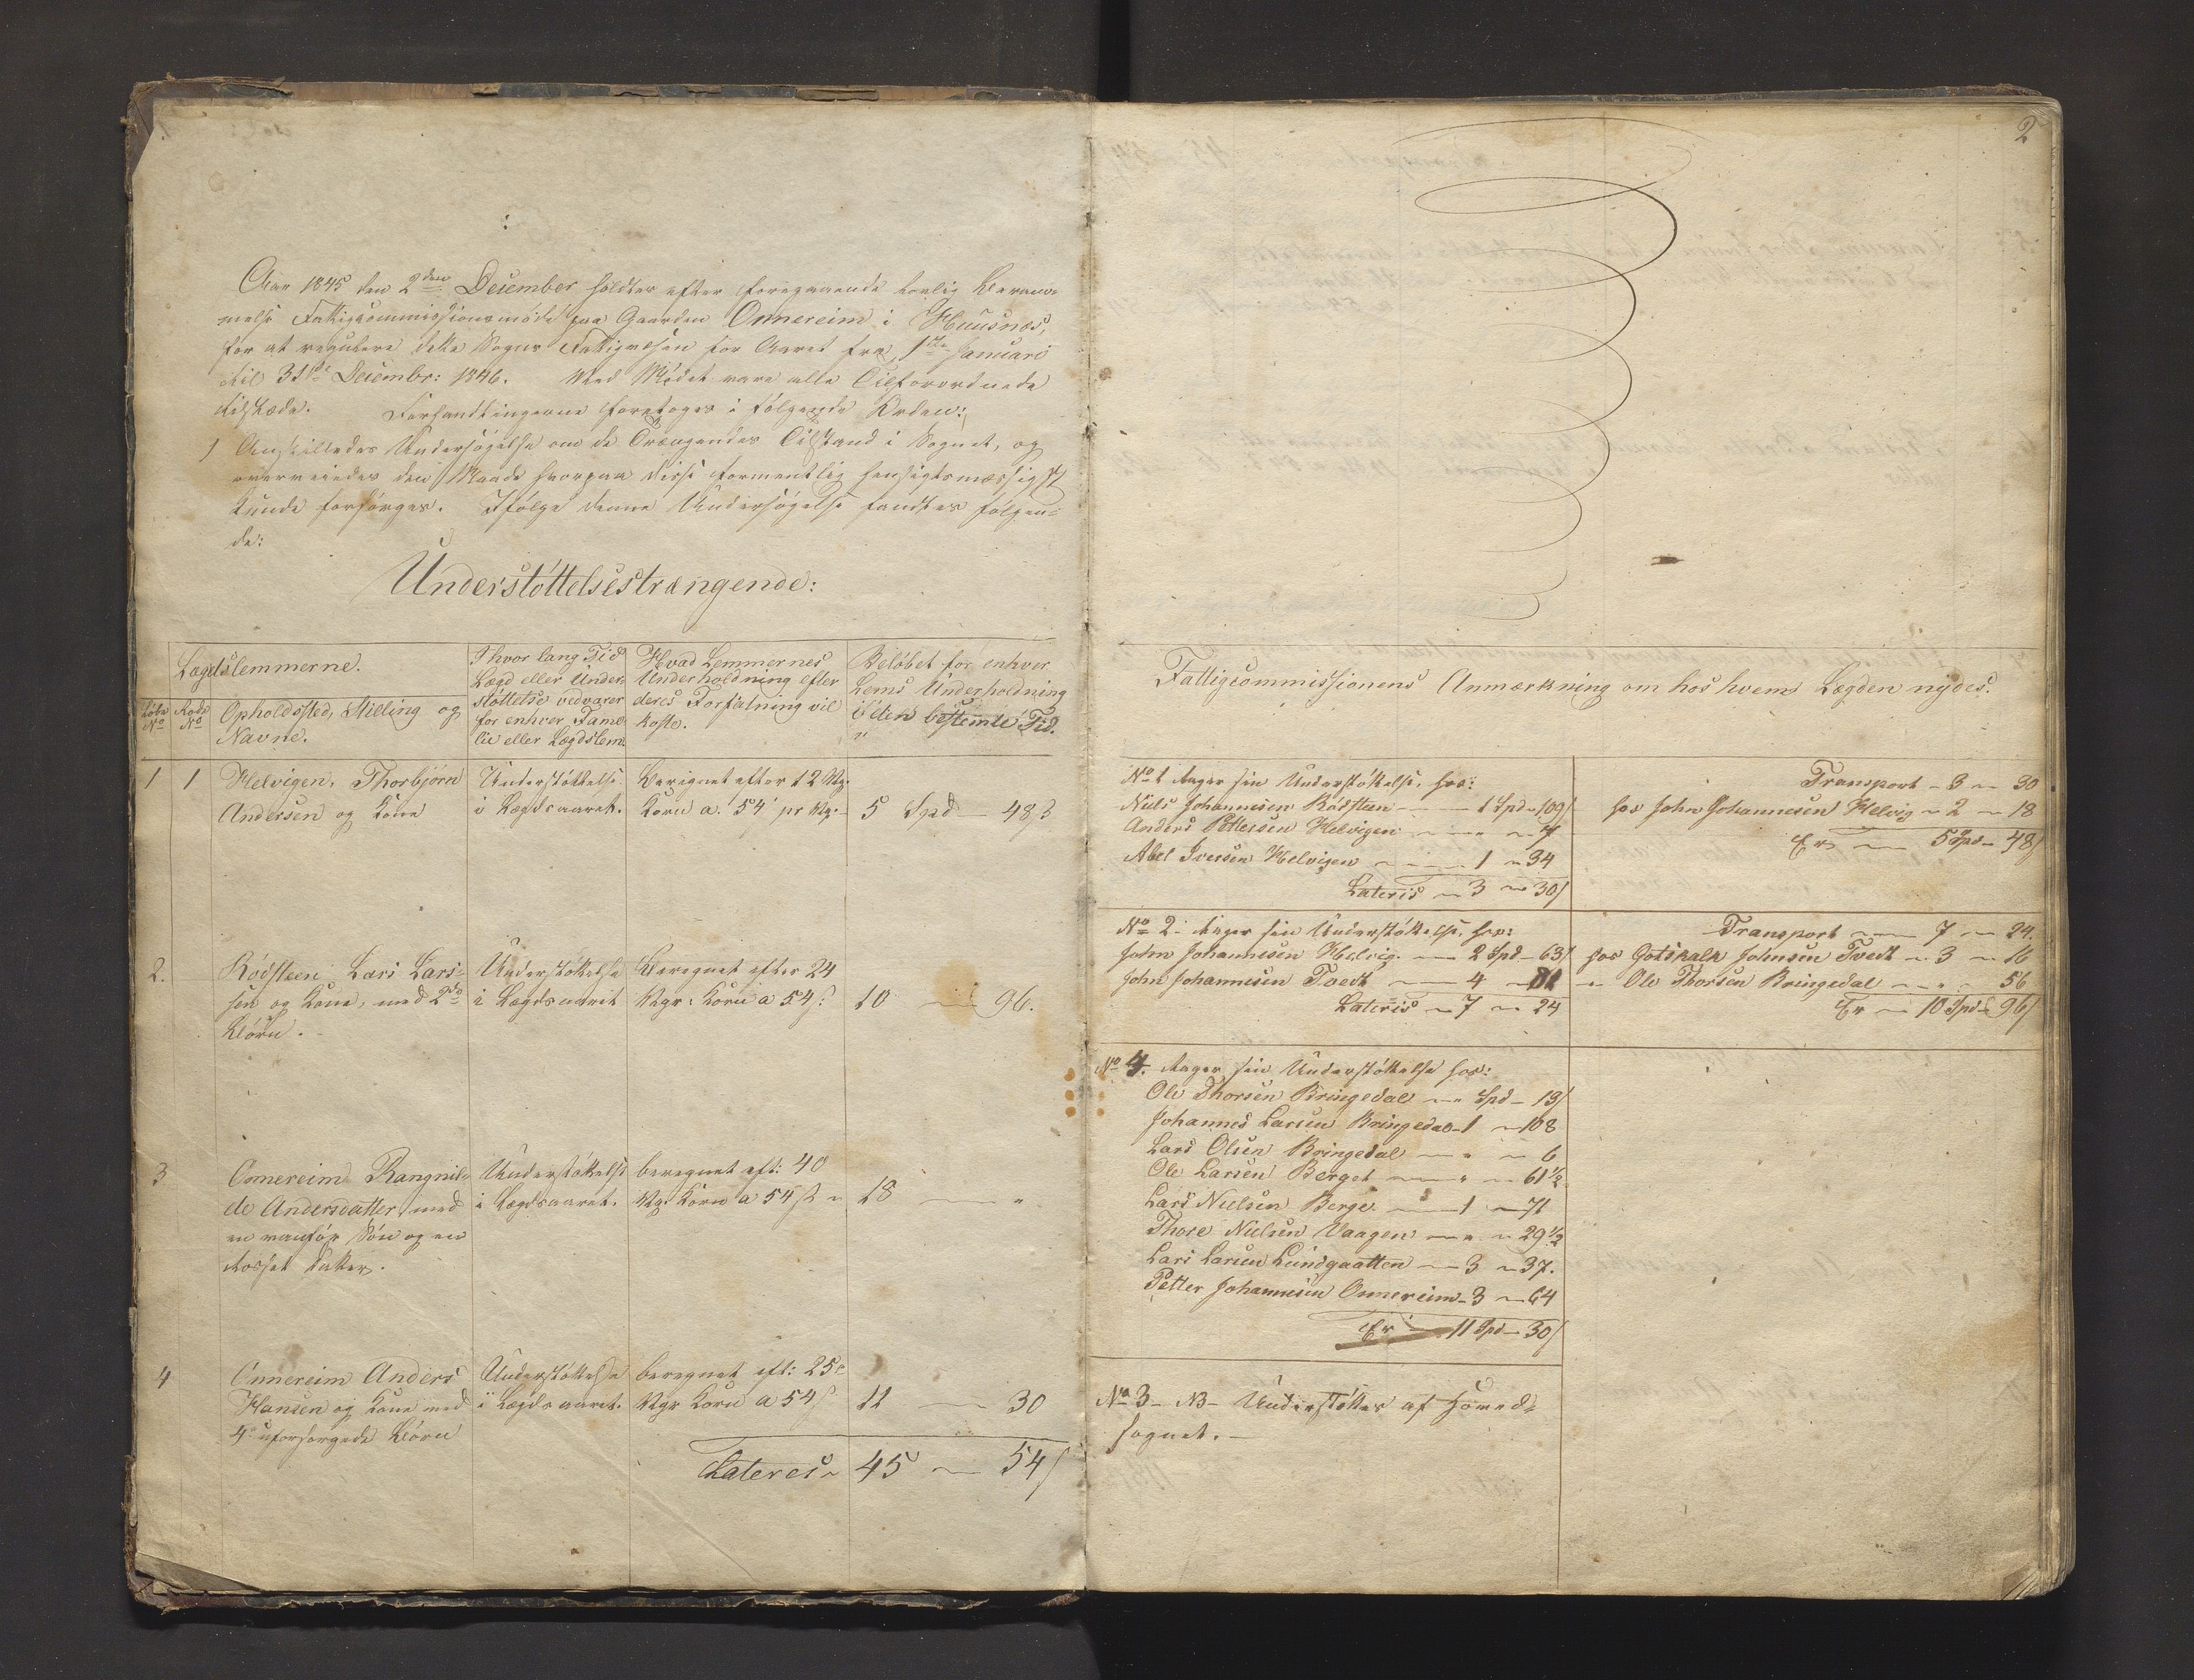 Aar 1845 den 2den December holdtes efter foregaaende lovlig Beram-
melse Fattigcommissionsmöde paa Gaarden Onnereim i Huusnæs,
for at regulere dette Sogns Fattigvæsen for Aaret fra 1ste Januari
til 31te Decembr: 1846. Ved Mödet vare alle Tilforordnede
tilstæde. Forhandlingerne foretoges i fölgende Orden:
1 Anstilledes Undersögelse om de Trængendes Tilstand i Sognet, og
overveiedes den Maade hvorpaa disse formentlig hensigtsmæssigst
kunde forsörges. Ifölge denne Undersögelse fandtes fölgen-
de:
Understöttelsestrængende:
Lægdslemmerne.
Löbe No
Rode No
Opholdssted, Stilling og
Navne.
I hvor lang Tid
Lægd eller Under-
stöttelse vedvarer
for enhver Fami-
lie eller Lægdslem.
Hvad Lemmernes
Underholdning efter
deres Forfatning vil
koste.
Belöbet for enhver
Lems Underholdning
i den bestemte Tid.
1 1 Helvigen, Thorbjörn
Andersen og Kone
Understöttelse
i Lægdsaaret.
Beregnet efter 12 Vg.
Korn a. 54 pr Vg.
5 Spd - 48 ß
2. Rödsteen Lars Lars-
sen og Kone, med 2de
Börn.
Understöttelse
i Lægdsaaret
Beregnet efter 24
Vgr: Korn a 54 ß
10 - 96.
3 Onnereim Rangnil-
de Andersdatter med
en vanför Sön og en
Datter.
Understöttelse
i Lægdsaaret.
beregnet eft: 40
Vg. Korn a 54 ß
18 - "
4 Onnereim Anders
Hansen og Kone med
4 uforsörgede Börn
Understöttelse
i Lægdsaaret.
beregnet eft: 25
Vgr Korn a 54 ß
11 - 30
Lateres 45 - 54 ß
2
Fattigcommissionens Anmærkning om hos hvem Lægden nydes.
No 1 tager sin Understöttelse, hos:
Niels Johannesen Rödsteen - 1 Spd - 109 ß
Anders Pettersen Helvigen - " - 7
Abel Iversen Helvigen - 1 - 34
Lateris - 3 - 30 ß
Transport - 3 - 30
hos John Johannesen Helvig - 2 - 18
Er - 5 Spd - 48 ß
No 2. tager sin Understöttelse, hos:
John Johannesen Helvig - 2 Spd - 63 ß
John Johannesen Tvedt - 4 - 81
Lateris - 7 - 24
Transport - 7 - 24.
hos Gotskalk Johnsen Tvedt - 3 - 16
" Ole Thorsen Bringedal - " - 56
Er - 10 Spd - 96 ß
No 4. tager sin Understöttelse hos:
Ole Thorsen Bringedal - " Spd - 13 ß
Johannes Larsen Bringedal - 1 - 108
Lars Olsen Bringedal - " - 6
Ole Larsen Berget - " - 61 1/2
Lars Nielsen Berge - 1 - 71
Thore Nielsen Vaagen - " - 29 1/2
Lars Larsen Lundgaatten - 3 - 37.
Petter Johannesen Onnereim - 3 - 64
Er - 11 Spd - 30 ß
No 3 - NB - Understöttes af Hoved-
sognet. -